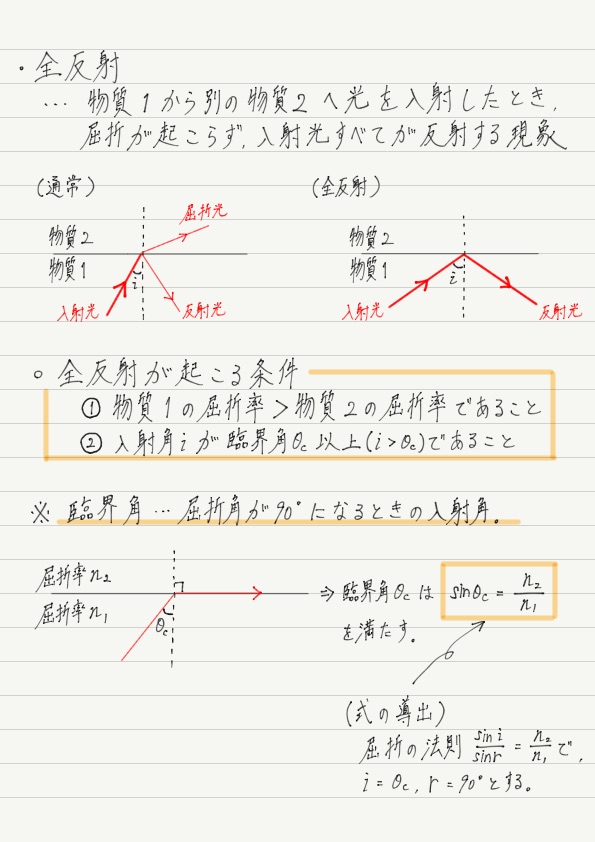 ・全反射
… 物質1から別の物質2へ光を入射したとき,
屈折が起こらず,入射光すべてが反射する現象
(通常)
屈折光
物質2
物質1
i
入射光
反射光
(全反射)
物質2
物質1
i
入射光
反射光
○ 全反射が起こる条件
① 物質1の屈折率>物質2の屈折率であること
② 入射角iが臨界角θc以上(i>θc)であること
※ 臨界角…屈折角が90°になるときの入射角。
屈折率n2
屈折率n1
θc
⇒ 臨界角θcは sinθc = n2/n1
を満たす。
(式の導出)
屈折の法則 sin i/sin r = n2/n1 で,
i = θc, r = 90°とする。